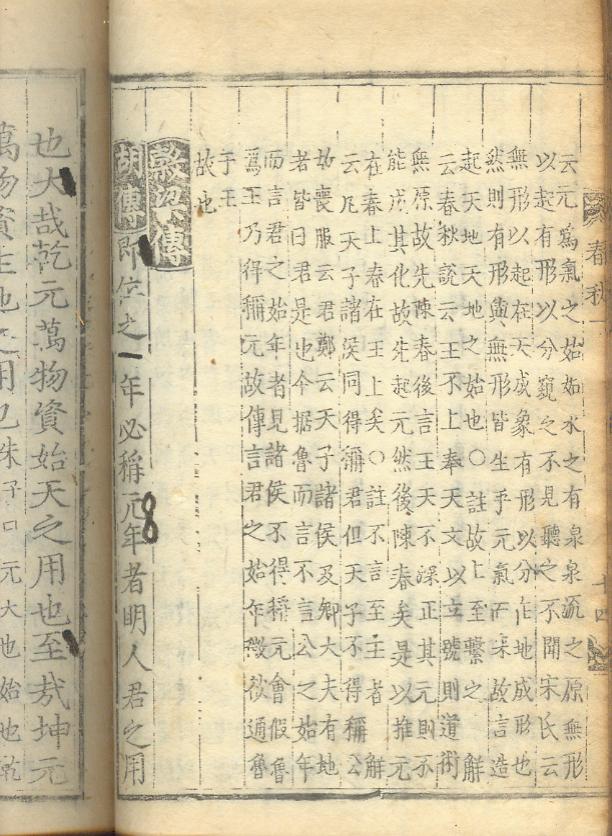 春秋一
十四
云元爲氣之始如水之有泉泉流之原無形
以起有形以分窺之不見聽之不聞宋氏云
無形以起在天成象有形以分在地成形也
然則有形與無形皆生乎元氣而來故言造
起天地天地之始也○註故上至繫之 解
云春秋說云王不上奉天文以立號則道術
無原故先陳春後言王天不深正其元則不
能成其化故先起元然後陳春矣是以推元
在春上春在王上矣○註不言至王者 解
云凡天子諸侯同得稱君但天子不得稱公
故喪服云君鄭云天子諸侯及卿大夫有地
者皆曰君是也今据魯而言不言公之始年
而言君之始年者見諸侯不得稱元會假魯
爲王乃得稱元故傳言君之始年微欲通魯
于王
故也
穀梁傳
胡傳 即位之一年必稱元年者明人君之用
也大哉乾元萬物資始天之用也至哉坤元
萬物資生地之用也朱子曰元大也始也乾